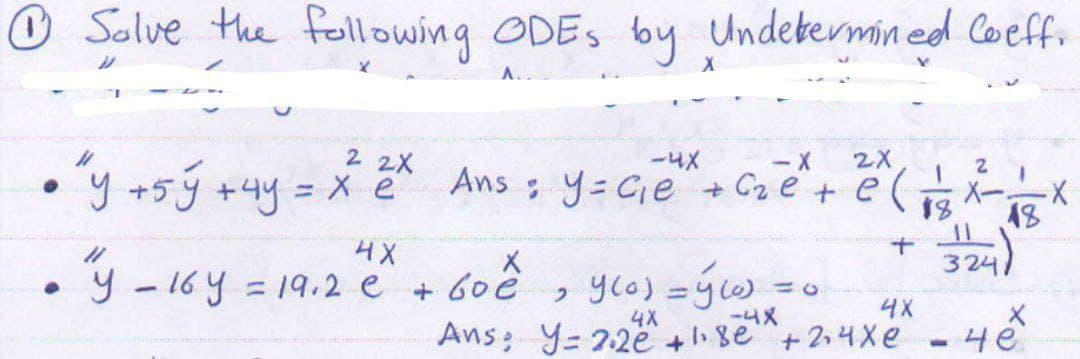 ① Solve the following ODEs by Undetermined Coeff.
• y'' + 5y' + 4y = x² e^{2x} Ans : y = C₁e^{-4x} + C₂e^{-x} + e^{2x} ( 1/18 x² - 1/18 x + 11/324 )
• y'' - 16y = 19.2 e^{4x} + 60e^{x} , y(0) = y'(0) = 0
Ans : y = 2.2e^{4x} + 1.8e^{-4x} + 2.4xe^{4x} - 4e^{x}